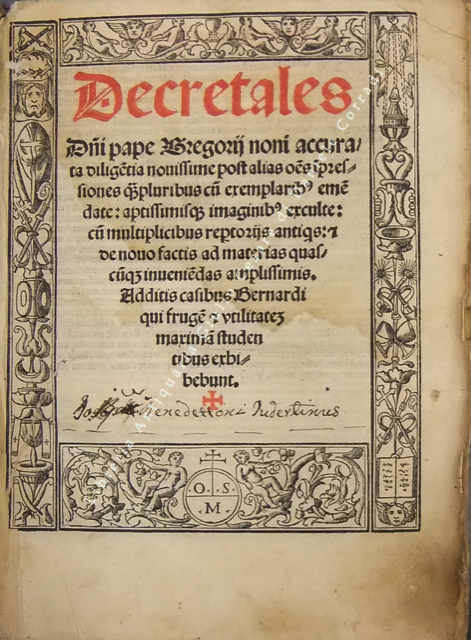 Decretales
Dñi pape Gregorij noni accura/
ta diligẽtia nouissime post alias oẽs ĩpres-
siones q̃pluribus cũ exemplarib⁹ emẽ
date: aptissimisqꝫ imaginib⁹ exculte:
cũ multiplicibus reptorijs antiqs: ⁊
de nouo factis ad materias quas-
cũqꝫ inueniẽdas amplissimis.
Additis casibus Bernardi
qui frugẽ ⁊ vtilitateꝫ
maximã studen
tibus exhi-
bebunt.
Benedettoni Tudertinus
O. S.
.M.